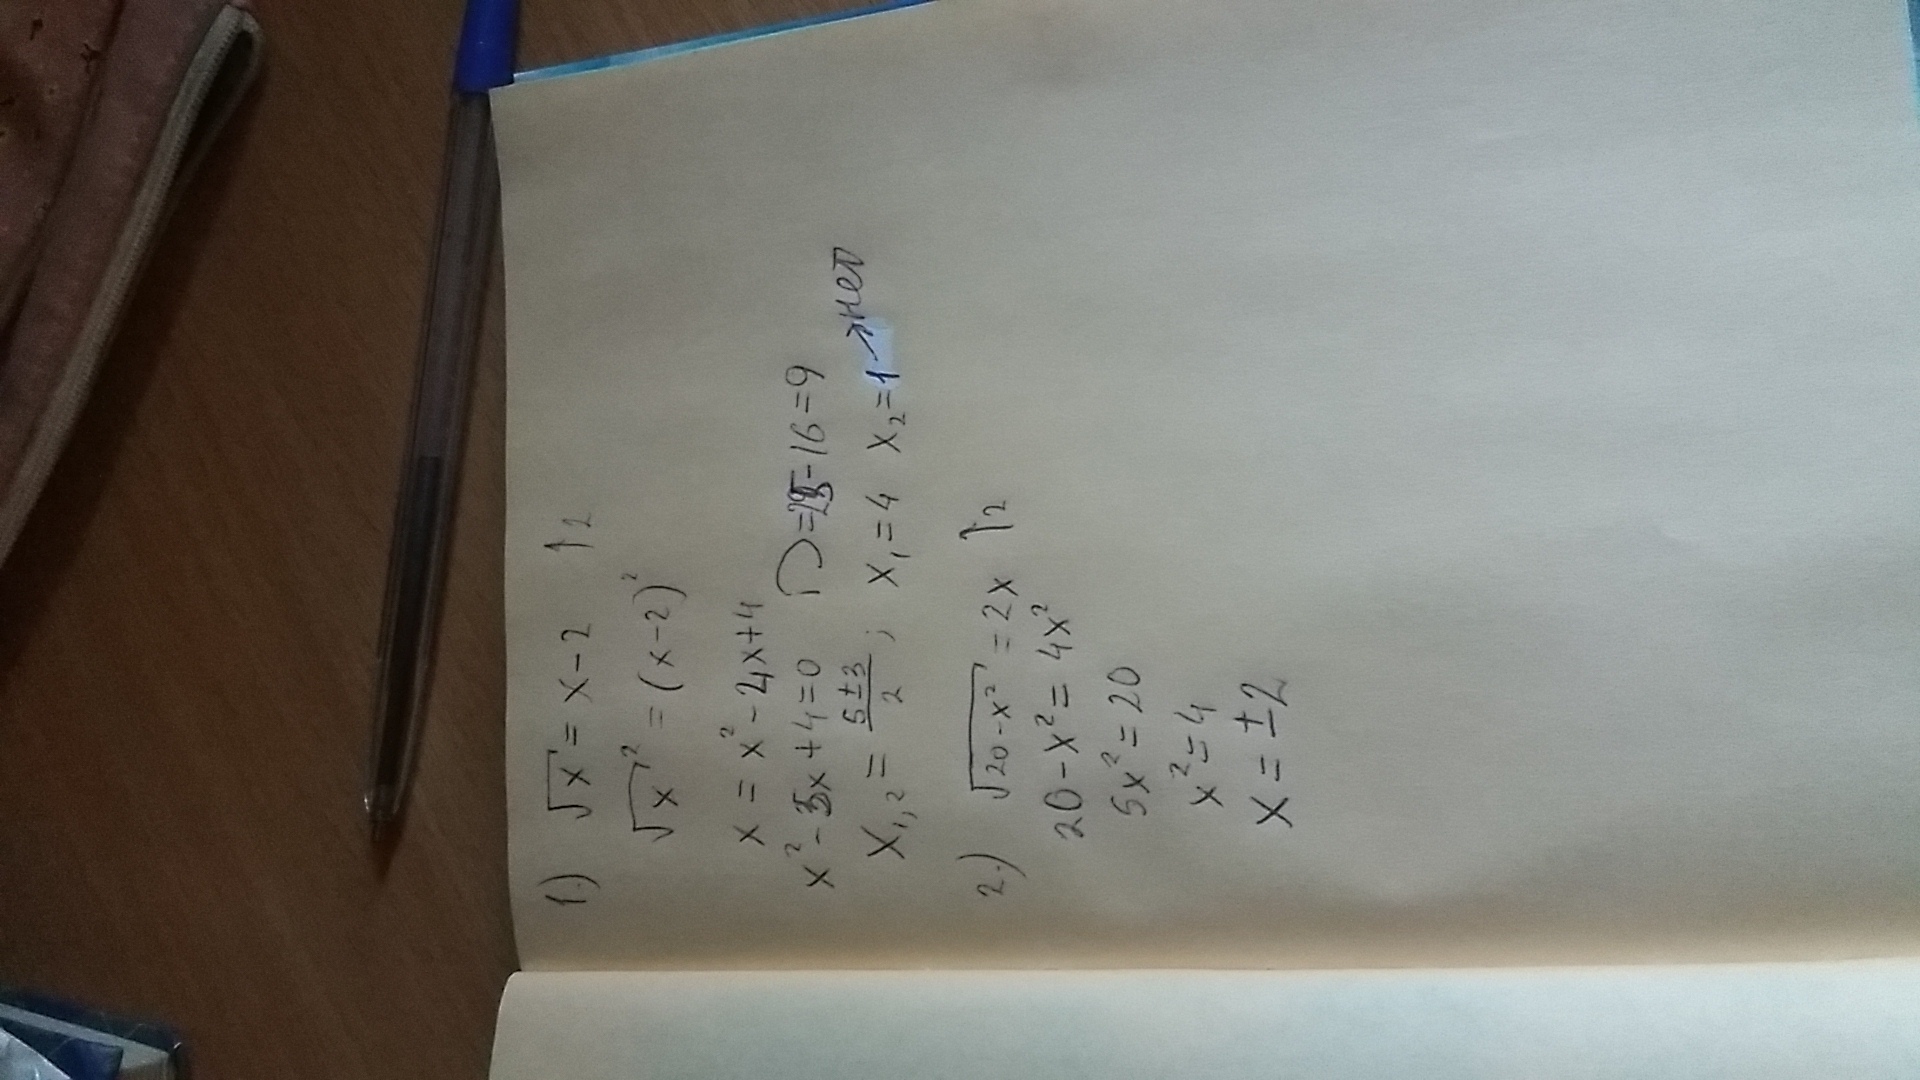 1.) √x = x-2 ↑2
√x² = (x-2)²
x = x² - 4x+4
x² - 5x+4=0 D=25-16=9
x₁,₂ = (5±3)/2 ; x₁=4 x₂=1→нет
2.) √20-x² = 2x ↑2
20-x² = 4x²
5x² = 20
x² = 4
x = ±2